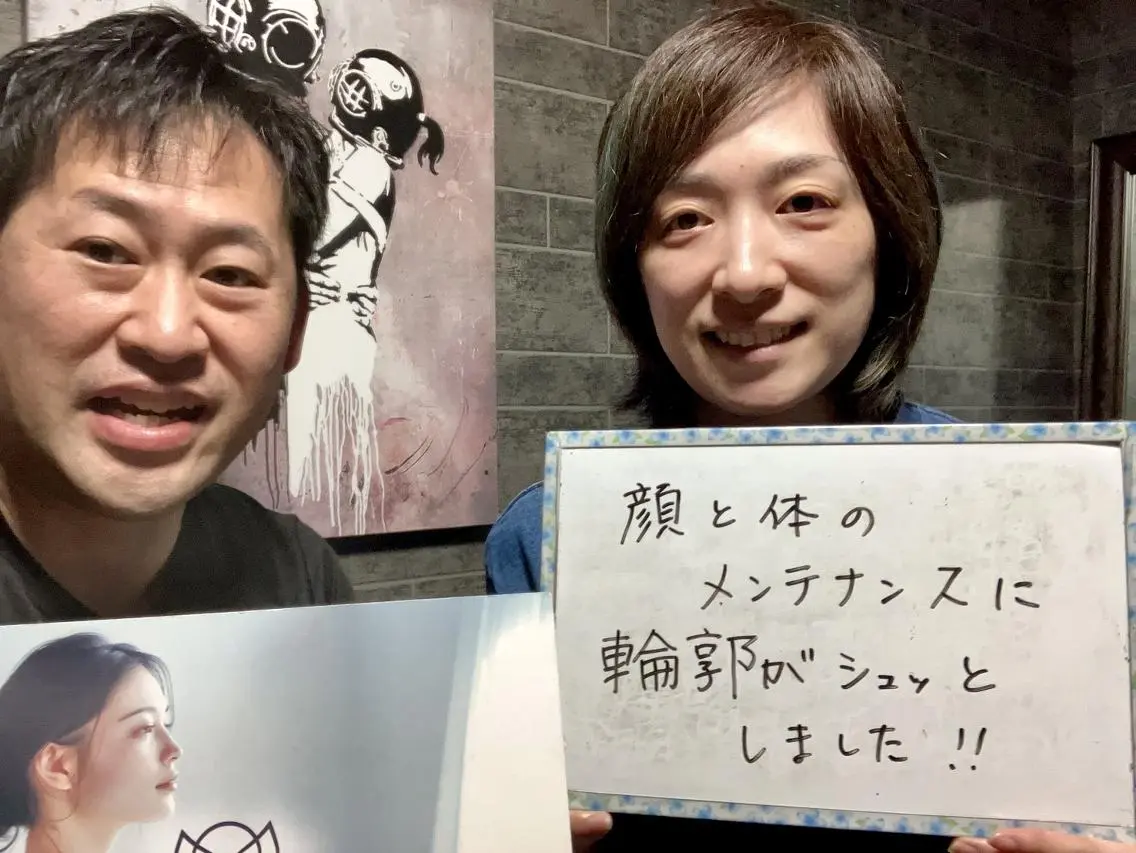 顔と体の
メンテナンスに
輪郭がシュッと
しました!!